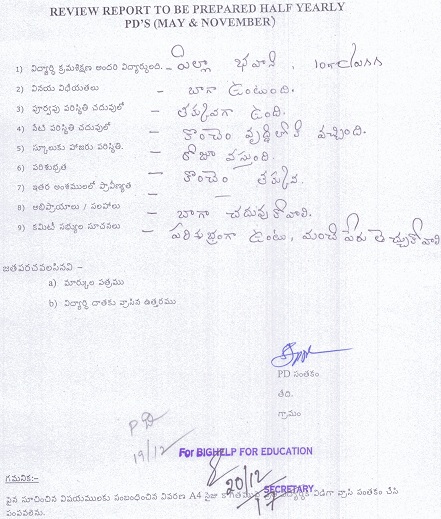 REVIEW REPORT TO BE PREPARED HALF YEARLY
PD'S (MAY & NOVEMBER)
1) విద్యార్థి క్రమశిక్షణ అందరి విద్యార్థులది. – పిల్లా భవాని, 10th class
2) వినయ విధేయతలు – బాగా ఉంటుంది.
3) పూర్వపు పరిస్థితి చదువులో – తక్కువగా ఉంది.
4) నేటి పరిస్థితి చదువులో – కొంచెం వృద్ధిలోకి వచ్చింది.
5) స్కూలుకు హాజరు పరిస్థితి. – రోజూ వస్తుంది.
6) పరిశుభ్రత – కొంచెం తక్కువ.
7) ఇతర అంశములలో ప్రావీణ్యత –
8) అభిప్రాయాలు / సలహాలు – బాగా చదువుకోవాలి.
9) కమిటీ సభ్యుల సూచనలు – పరిశుభ్రంగా ఉంటు, మంచి పేరు తెచ్చుకోవాలి
జతపరచవలసినవి –
a) మార్కుల పత్రము
b) విద్యార్థి దాతకు వ్రాసిన ఉత్తరము
PD సంతకం.
తేది.
గ్రామం
PD
19/12
For BIGHELP FOR EDUCATION
20/12
17
SECRETARY
గమనిక:–
పైన సూచించిన విషయములకు సంబంధించిన వివరాల A4 సైజు కాగితముపై విడిగా వ్రాసి సంతకం చేసి
పంపవలెను.